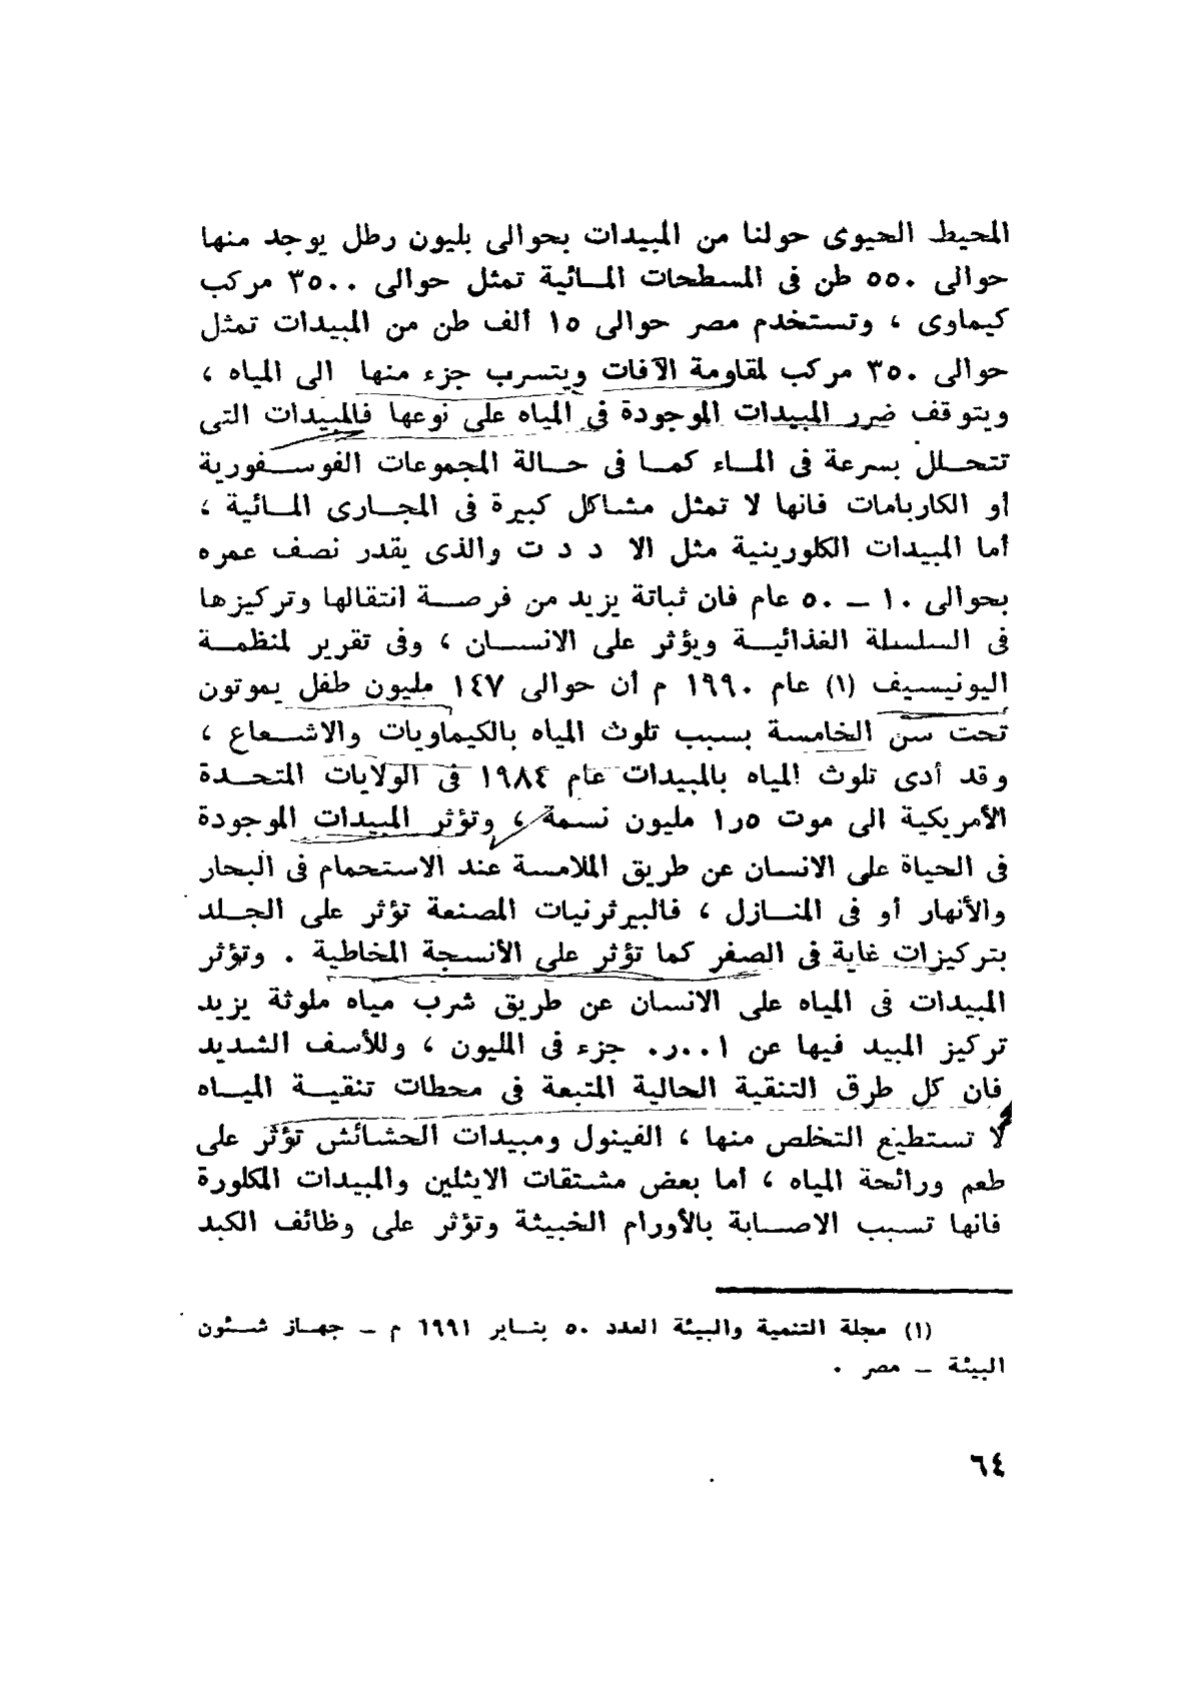 المحيط الحيوى حولنا من المبيدات بحوالى بليون رطل يوجد منها
حوالى ٥٥٠ طن فى المسطحات المائية تمثل حوالى ٣٥٠٠ مركب
كيماوى ، وتستخدم مصر حوالى ١٥ ألف طن من المبيدات تمثل
حوالى ٣٥٠ مركب لمقاومة الآفات ويتسرب جزء منها الى المياه ،
ويتوقف ضرر المبيدات الموجودة فى المياه على نوعها فالمبيدات التى
تتحلل بسرعة فى الماء كما فى حالة المجموعات الفوسفورية
أو الكاربامات فانها لا تمثل مشاكل كبيرة فى المجارى المائية ،
أما المبيدات الكلورينية مثل الا د د ت والذى يقدر نصف عمره
بحوالى ١٠ – ٥٠ عام فان ثباتة يزيد من فرصة انتقالها وتركيزها
فى السلسلة الغذائية ويؤثر على الانسان ، وفى تقرير لمنظمة
اليونيسيف (١) عام ١٩٩٠ م أن حوالى ١٤٧ مليون طفل يموتون
تحت سن الخامسة بسبب تلوث المياه بالكيماويات والاشعاع ،
وقد أدى تلوث المياه بالمبيدات عام ١٩٨٤ فى الولايات المتحدة
الأمريكية الى موت ٥ر١ مليون نسمة ، وتؤثر المبيدات الموجودة
فى الحياة على الانسان عن طريق الملامسة عند الاستحمام فى البحار
والأنهار أو فى المنازل ، فالبيرثرنيات المصنعة تؤثر على الجلد
بتركيزات غاية فى الصفر كما تؤثر على الأنسجة المخاطية . وتؤثر
المبيدات فى المياه على الانسان عن طريق شرب مياه ملوثة يزيد
تركيز المبيد فيها عن ٠٠١ر٠ جزء فى المليون ، وللأسف الشديد
فان كل طرق التنقية الحالية المتبعة فى محطات تنقية المياه
لا تستطيع التخلص منها ، الفينول ومبيدات الحشائش تؤثر على
طعم ورائحة المياه ، أما بعض مشتقات الايثلين والمبيدات المكلورة
فانها تسبب الاصابة بالأورام الخبيثة وتؤثر على وظائف الكبد
(١) مجلة التنمية والبيئة العدد ٥٠ يناير ١٩٩١ م – جهاز شئون
البيئة – مصر .
٦٤